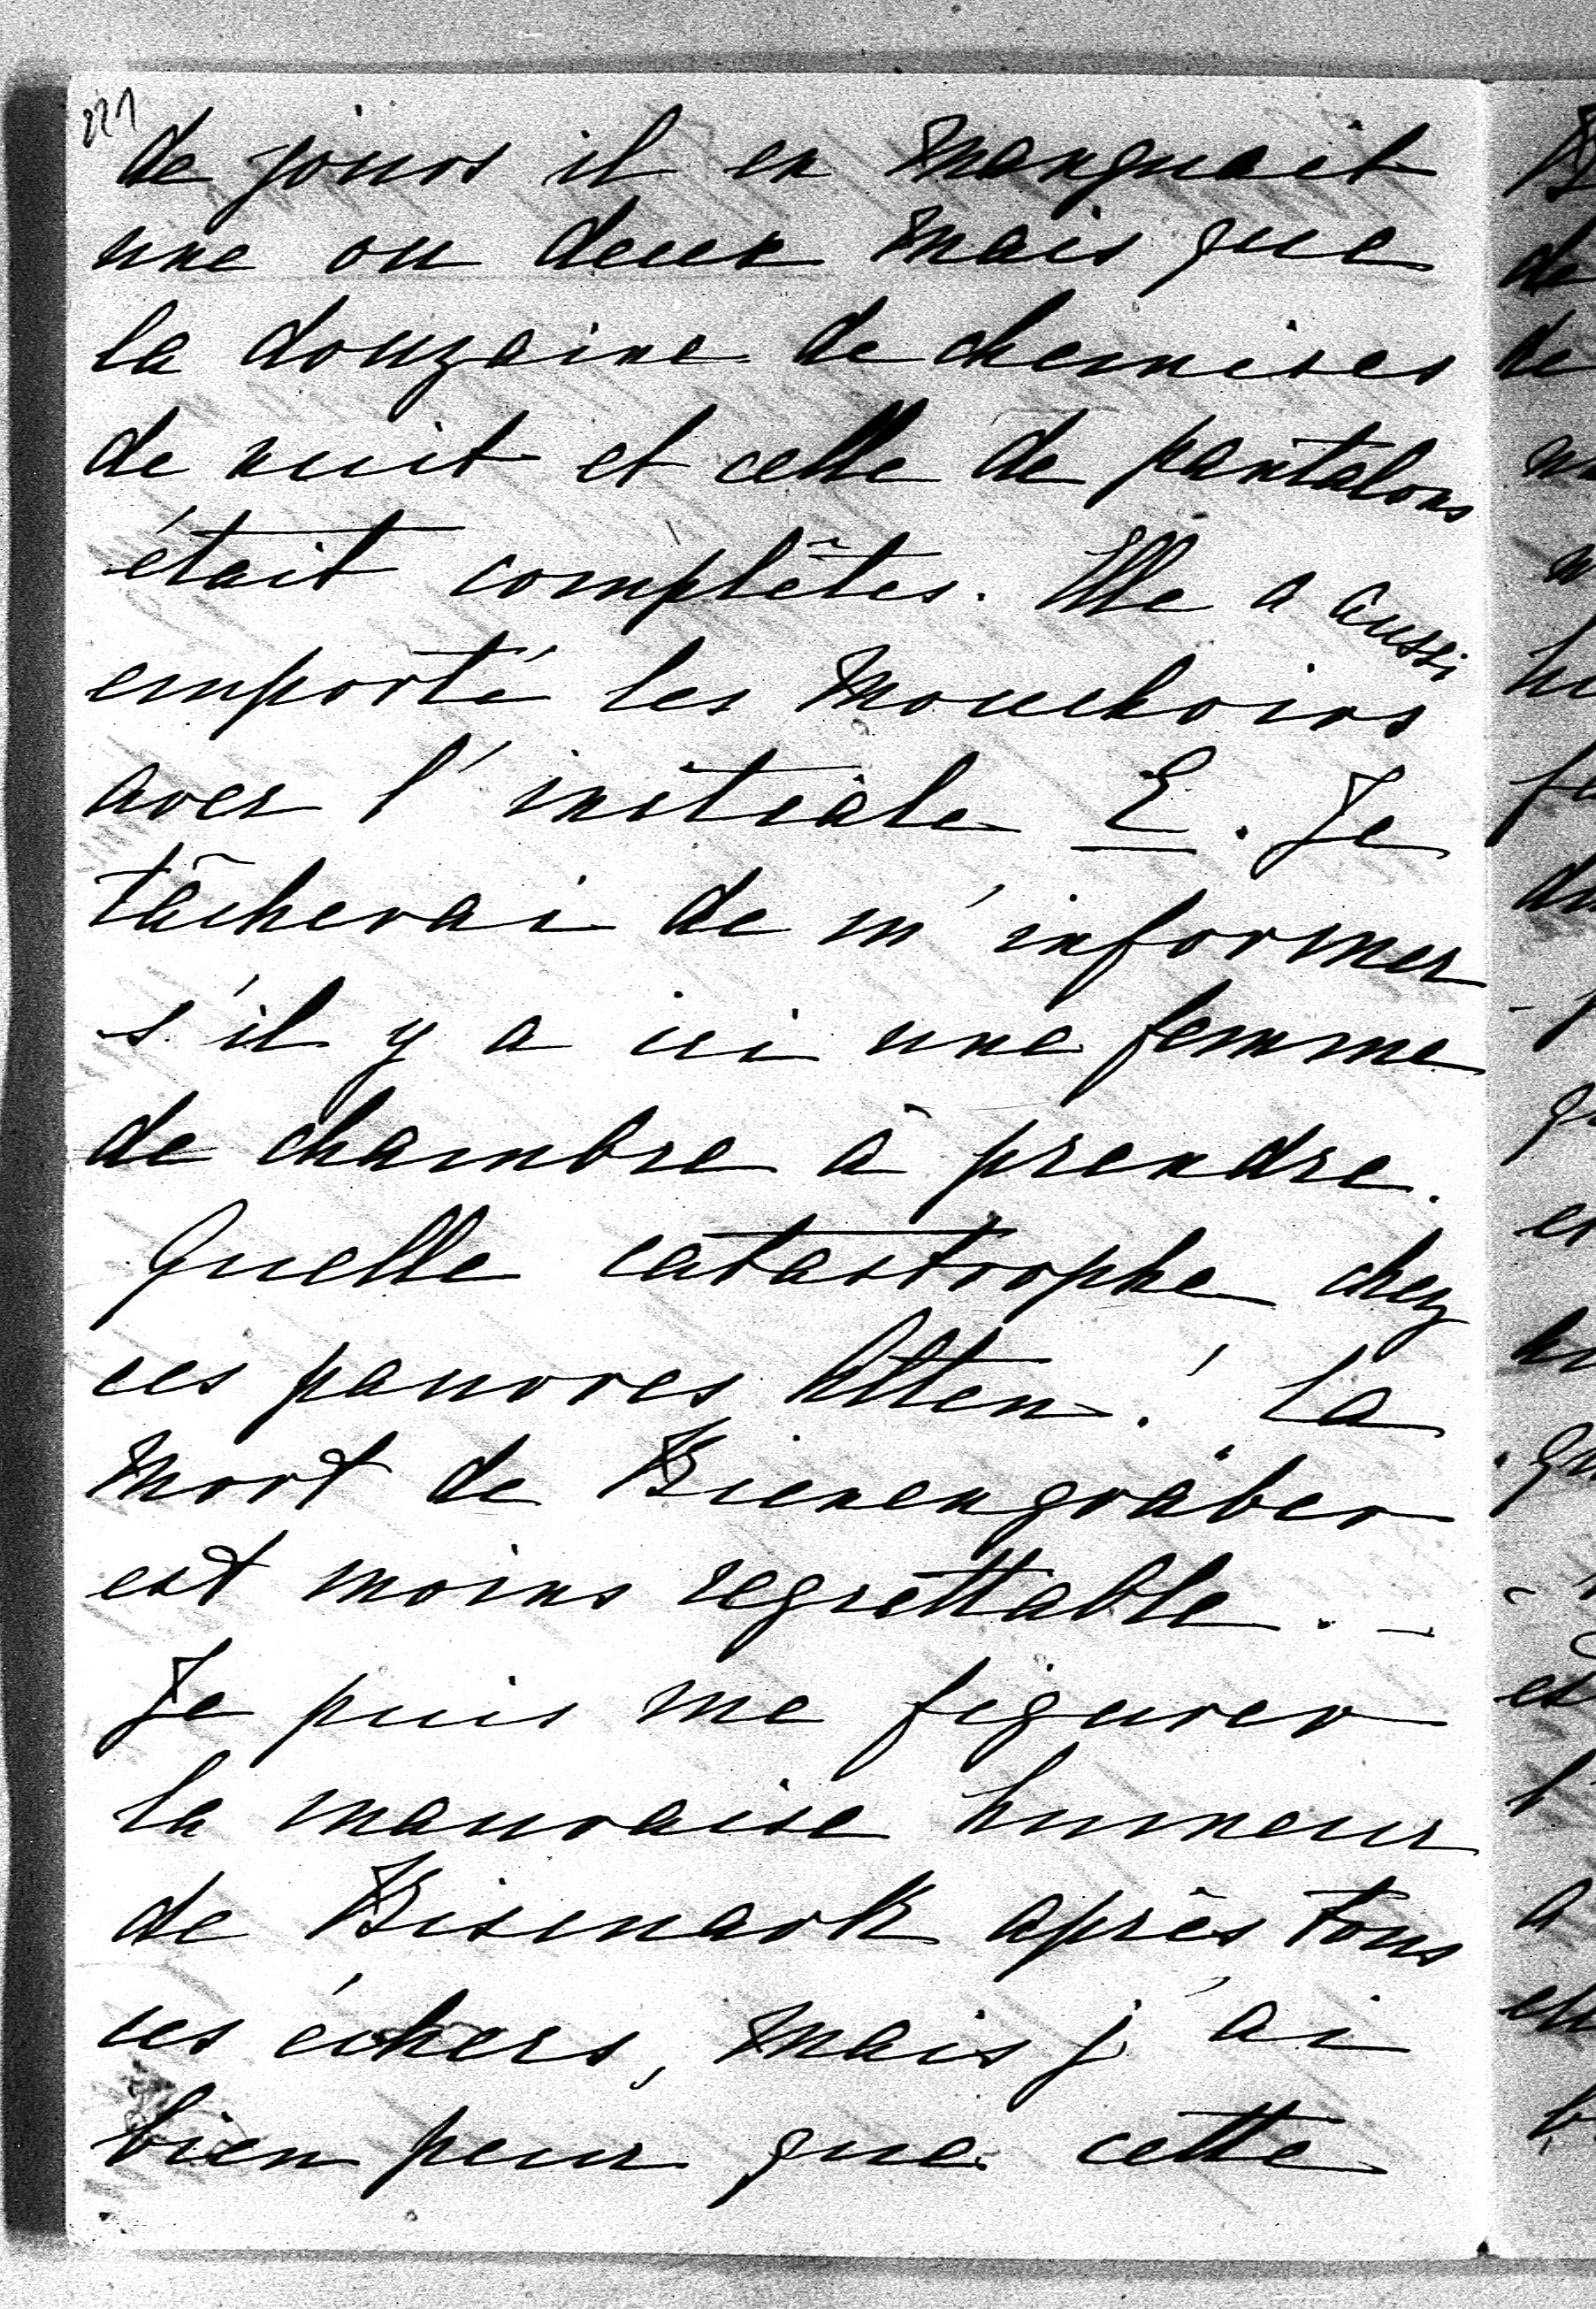 de jours il en manquait
une ou deux mais que
la douzaine de chemises
de nuit et celle de pantalons
était complètes. Elle a aussi
emporté les mouchoirs
avec l'initiale E. Je
tâcherai de m'informer
s'il y a ici une femme
de chambre à prendre.
Quelle catastrophe chez
ces pauvres Alten! La
mort de Bienengräber
est moins regrettable. –
Je puis me figurer
la mauvaise humeur
de Bismark après tous
ces échecs, mais j'ai
bien peur que cette